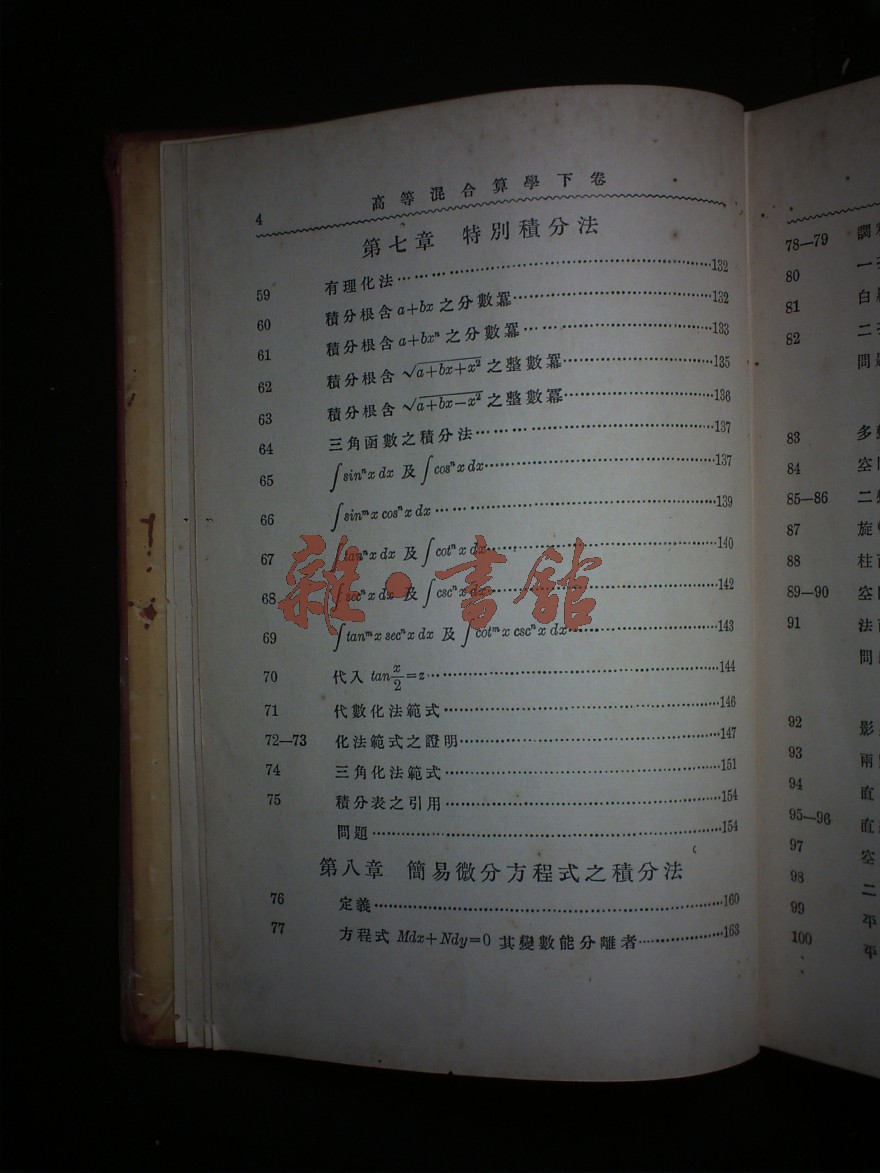 4 高等混合算學下卷
第七章 特別積分法
59 有理化法……………132
60 積分根含 a+bx 之分數冪……………132
61 積分根含 a+bxⁿ 之分數冪……………133
62 積分根含 √a+bx+x² 之整數冪……………135
63 積分根含 √a+bx−x² 之整數冪……………136
64 三角函數之積分法……………137
65 ∫sinⁿx dx 及 ∫cosⁿx dx……………137
66 ∫sinᵐx cosⁿx dx……………139
67 ∫tanⁿx dx 及 ∫cotⁿx dx……………140
68 ∫secⁿx dx 及 ∫cscⁿx dx……………142
69 ∫tanᵐx secⁿx dx 及 ∫cotᵐx cscⁿx dx……………143
70 代入 tan x/2=z……………144
71 代數化法範式……………146
72—73 化法範式之證明……………147
74 三角化法範式……………151
75 積分表之引用……………154
問題……………154
第八章 簡易微分方程式之積分法
76 定義……………160
77 方程式 Mdx+Ndy=0 其變數能分離者……………163
雜·書館
78—79 調
80 一
81 白
82 二
問
83 多
84 空
85—86 二
87 旋
88 柱
89—90 空
91 法
問
92 影
93 兩
94 直
95—96 直
97 空
98 二
99 平
100 平